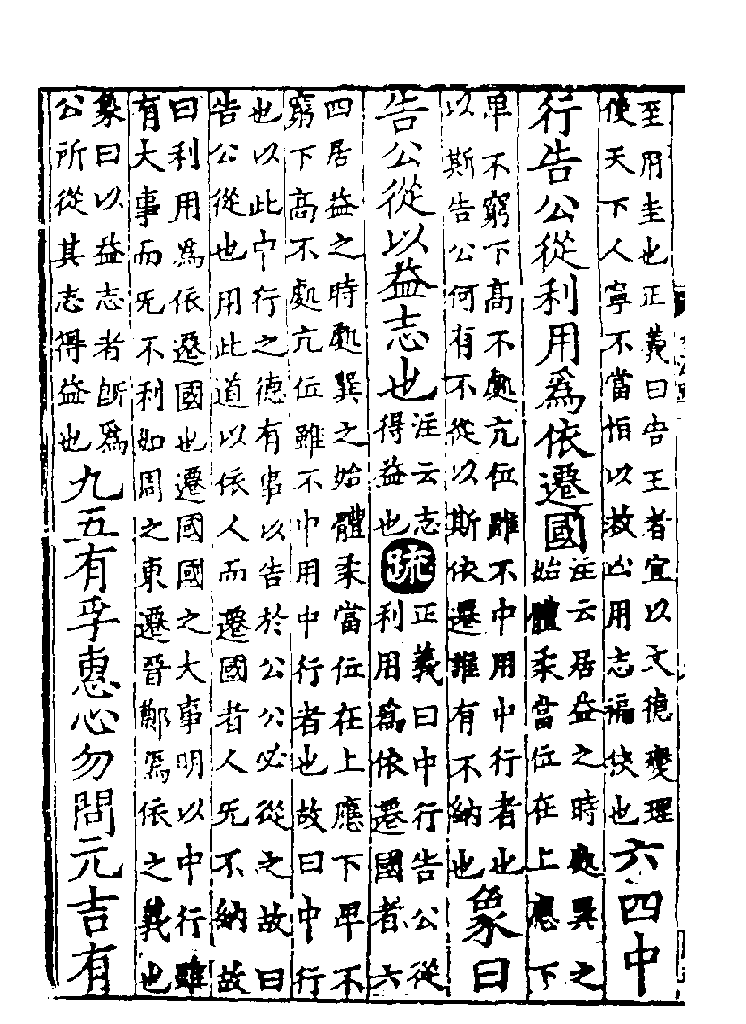 至用圭也正義曰告王者宜以文德燮理
使天下人寧不當恒以救凶用志褊狹也
六四中
行告公從利用爲依遷國
注云居益之時處巽之
始體柔當位在上應下
卑不窮下高不處亢位雖不中用中行者也
以斯告公何有不從以斯依遷誰有不納也
象曰
告公從以益志也
注云志
得益也
疏
正義曰中行告公從
利用爲依遷國者六
四居益之時處巽之始體柔當位在上應下卑不
窮下高不處亢位雖不中用中行者也故曰中行
也以此中行之德有事以告於公公必從之故曰
告公從也用此道以依人而遷國者人旡不納故
曰利用爲依遷國也遷國國之大事明以中行雖
有大事而旡不利如周之東遷晉鄭焉依之義也
象曰以益志者旣爲
公所從其志得益也
九五有孚惠心勿問元吉有